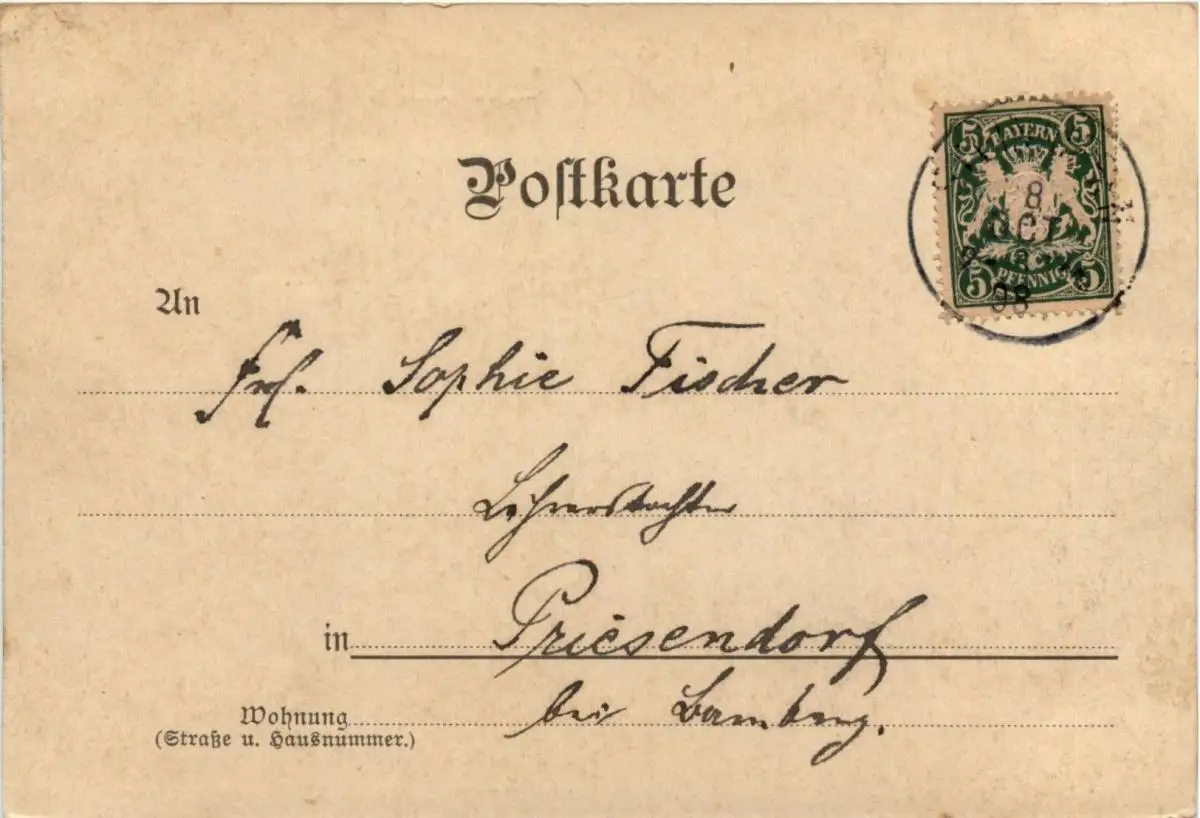 Postkarte
5 BAYERN 5
8
OCT
98
5 PFENNIG 5
An
Frl. Sophie Fischer
Lehrerstochter
in Priesendorf
Wohnung bei Bamberg.
(Straße u. Hausnummer.)